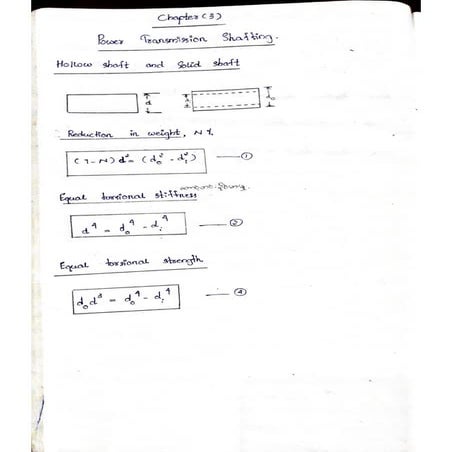 Chapter (3)
Power Transmission Shafting.
Hollow shaft and Solid shaft
d
dᵢ
d₀
Reduction in weight, N %
(1-N) d² = (d₀² - dᵢ²) — ①
Equal torsional stiffness
d⁴ = d₀⁴ - dᵢ⁴ — ②
Equal torsional strength
d₀d³ = d₀⁴ - dᵢ⁴ — ④